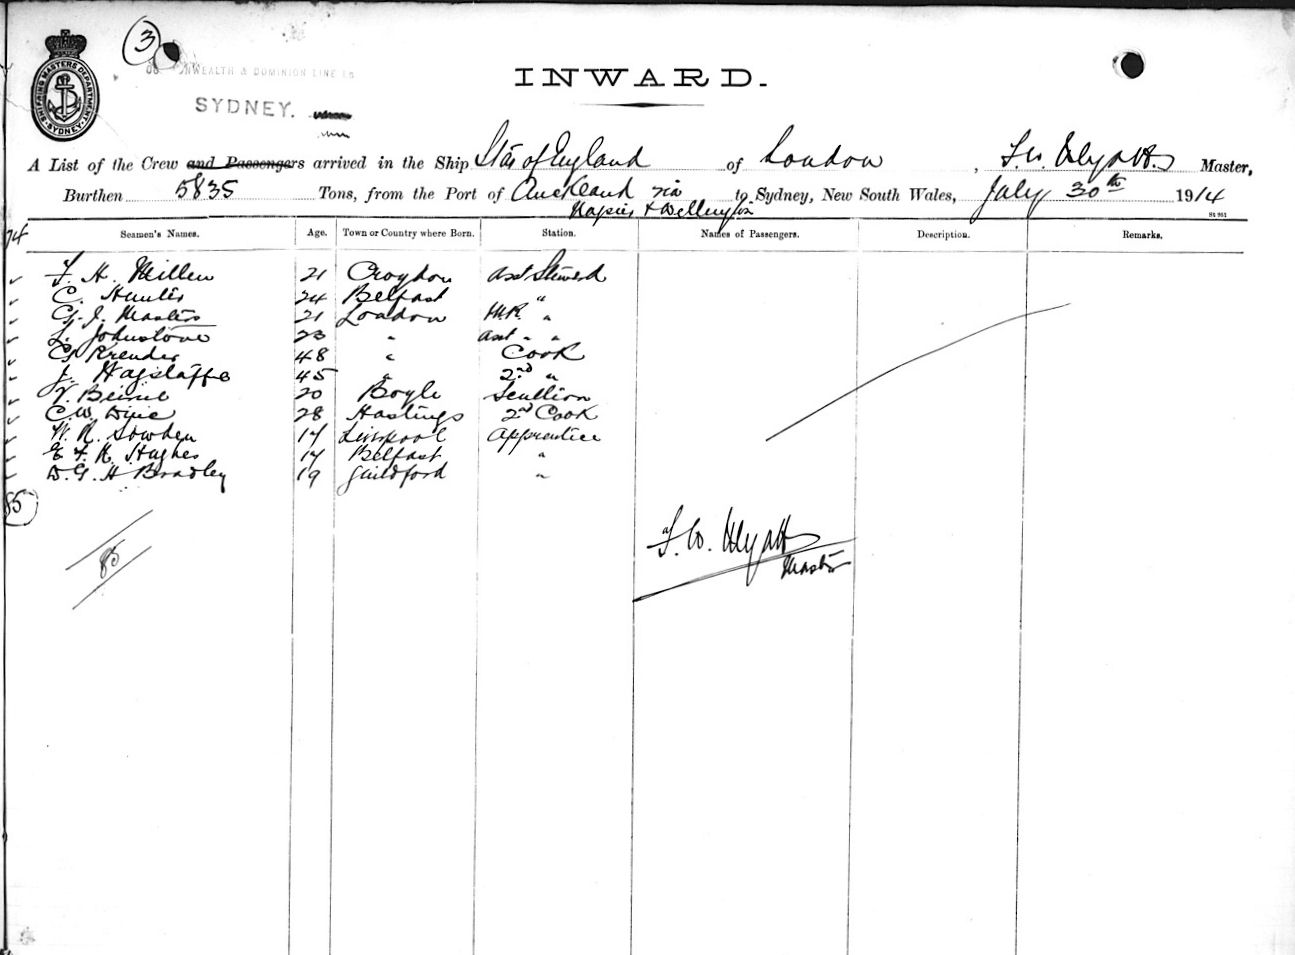 3
SHIPPING MASTERS DEPARTMENT SYDNEY
WEALTH & DOMINION LINE
SYDNEY.
INWARD.
A List of the Crew and Passengers arrived in the Ship Star of England of London, F.W. Wyatt Master,
Burthen 5835 Tons, from the Port of Auckland via Napier & Wellington to Sydney, New South Wales, July 30th 1914
74 Seamen's Names. Age. Town or Country where Born. Station. Names of Passengers. Description. Remarks.
F. H. Millen 21 Croydon Asst Steward
C. Hunter 24 Belfast "
G. J. Masters 21 London M.R. "
L. Johnstone 23 " Asst " "
G. 48 " Cook
J. Hagstaffe 45 " 2nd "
V. Beirne 20 Boyle Scullion
C.W. 28 Hastings 2nd Cook
W. R. Sowden 17 Liverpool Apprentice
E F. R. Hughes 17 Belfast "
D. G. H. Bradley 19 Guildford "
85
85
F. W. Wyatt
Master